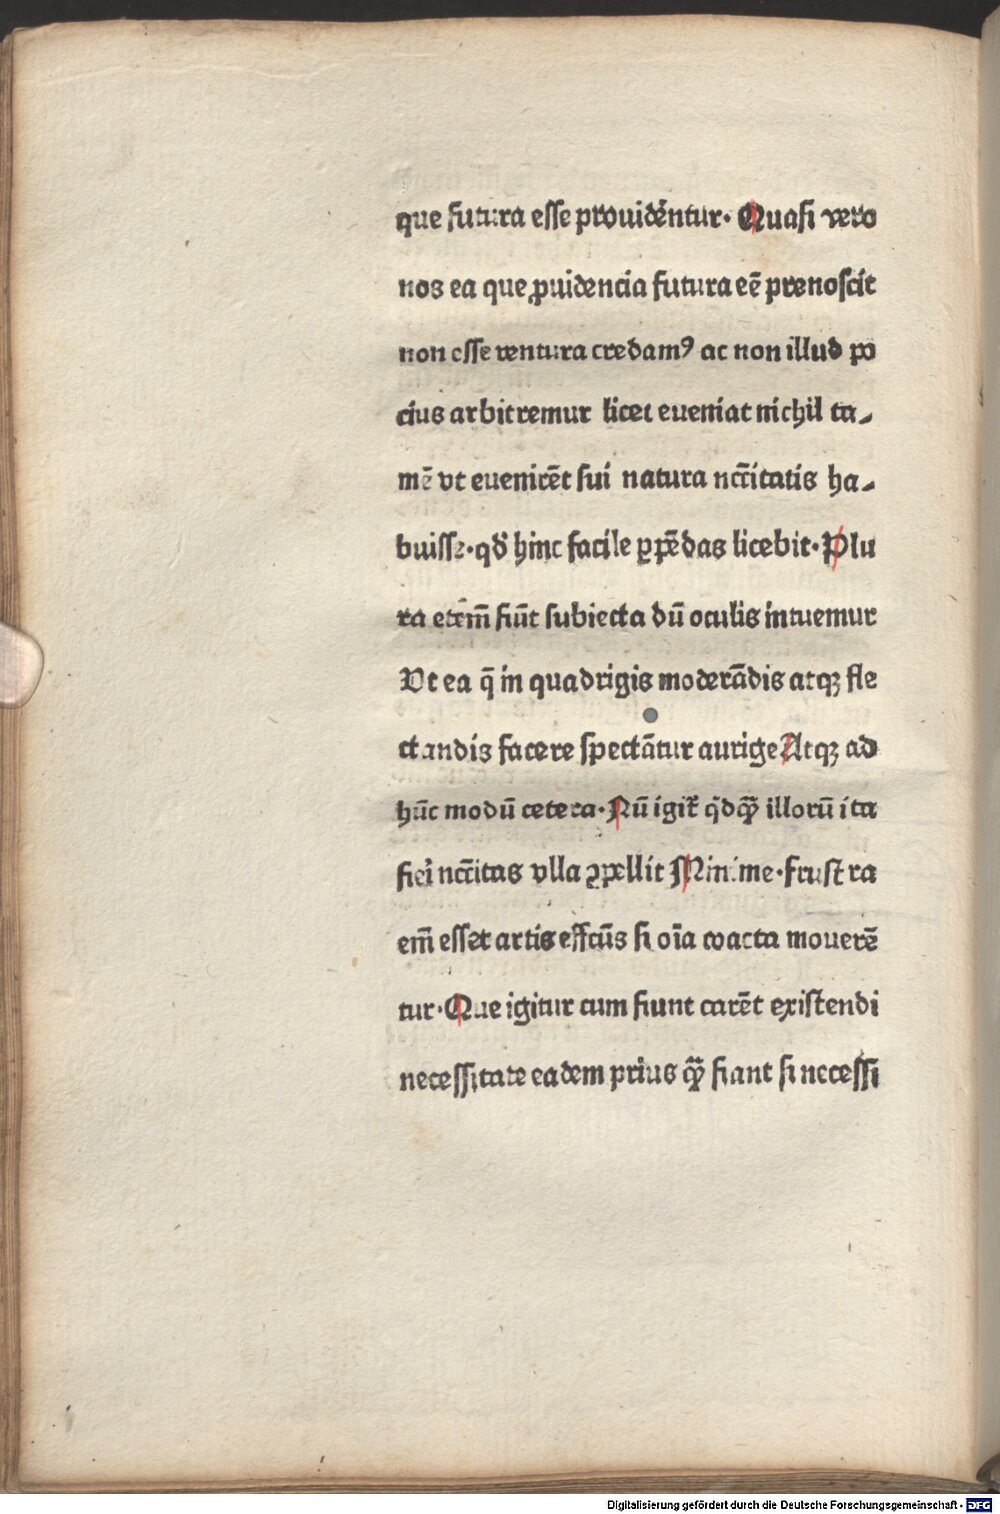 que futura esse prouidẽntur· Quasi vero
nos ea que ꝓuidencia futura eẽ prenoscit
non esse ventura credamꝰ ac non illud po
cius arbitremur licet eueniat nichil ta⸗
mẽ vt euenirẽt sui natura nccĩtatis ha⸗
buisse·qđ hinc facile ꝑpẽdas licebit· Plu
ra etem̃ fiũt subiecta dũ oculis intuemur
Vt ea q̃ in quadrigis moderãdis atqꝫ fle
ctandis facere spectãtur aurige Atqꝫ ad
hũc modũ cetera· Nũ igit̃ q̇dqꝫ̃ illorũ ita
fieri nccĩtas vlla ꝓpellit Minime·frustra
em̃ esset artis effcũs si oĩa coacta mouerẽ
tur· Que igitur cum fiunt carẽt existendi
necessitate eadem prius qꝫ̃ fiant si necessi
Digitalisierung gefördert durch die Deutsche Forschungsgemeinschaft - DFG